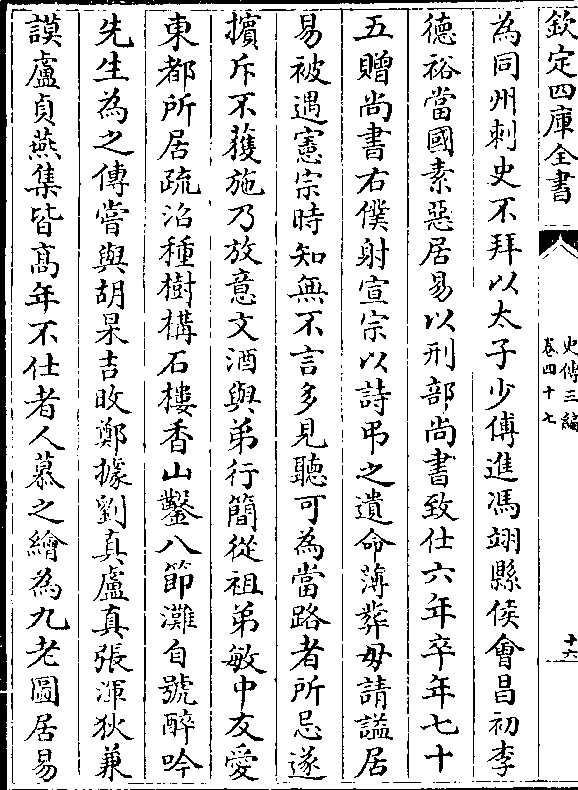 欽定四庫全書
史傳三編
卷四十七
十六
為同州刺史不拜以太子少傅進馮翊縣侯會昌初李
德裕當國素惡居易以刑部尚書致仕六年卒年七十
五贈尚書右僕射宣宗以詩弔之遺命薄葬毋請謚居
易被遇憲宗時知無不言多見聽可為當路者所忌遂
擯斥不獲施乃放意文酒與弟行簡從祖弟敏中友愛
東都所居疏沿種樹構石樓香山鑿八節灘自號醉吟
先生為之傳嘗與胡杲吉旼鄭據劉真盧真張渾狄兼
謨盧貞燕集皆髙年不仕者人慕之繪為九老圖居易